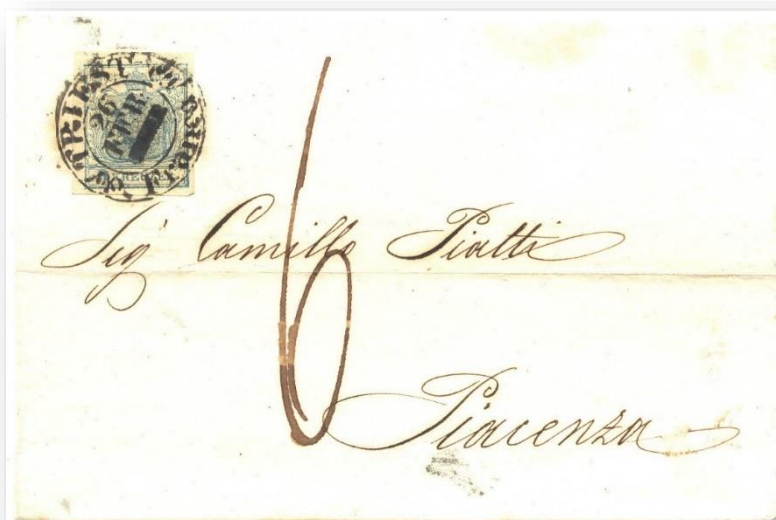 TRIEST
26
FEB
Fran
KREU
Sigʳ Camillo Piatti
6
Piacenza